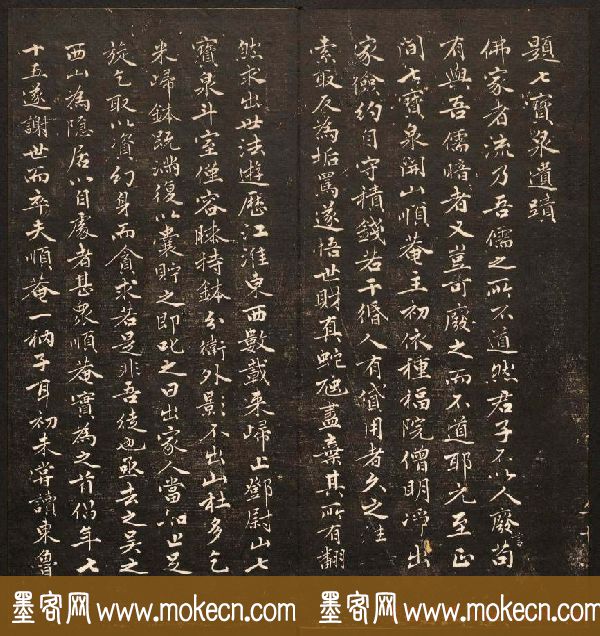 題七寶泉遺蹟
佛家者流乃吾儒之所不道然君子不以人廢苟
有與吾儒暗者又豈可廢之而不道耶元至正
間七寶泉開山順菴主初依種福院僧明淨出
家儉約自守積錢若干緡人有貸用者久之往
素取反為垢罵遂悟世財真蛇虺盡棄其所有翻
然求出世法遊歷江淮東西數載來歸上鄧尉山七
寶泉斗室僅容膝持鉢分衛外影不出山杜多乞
米歸鉢既滿復以囊貯之即叱之曰出家人當知止足
旋乞取以資幻身而貪求若是非吾徒也亟去之吳之
西山為隱居以自處者甚眾順菴實為之首倡年七
十五遂謝世而卒夫順菴一衲子耳初未嘗讀東魯
墨客网 www.mokecn.com 墨客网 www.mokecn.com